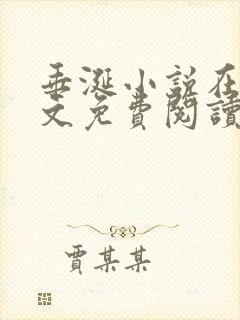 垂涎小説在
文免費閱讀
賈某某